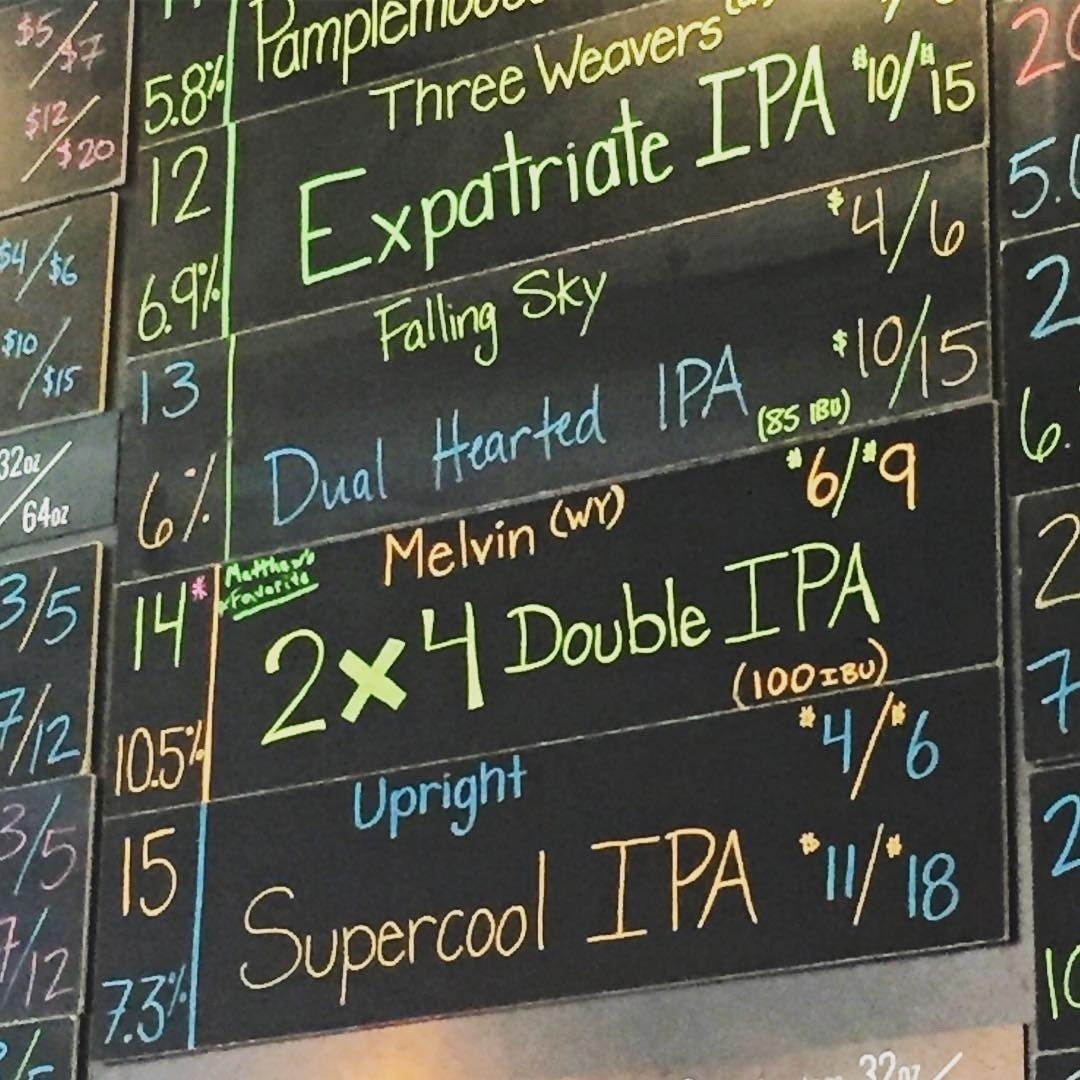 $5/$7
$12/$20
$4/$6
$10/$15
32oz/64oz
3/5
7/12
3/5
7/12
5.8%
Three Weavers
12
Expatriate IPA $10/$15
6.9%
Falling Sky $4/6
13
Dual Hearted IPA $10/15
(85 IBU)
6%
Melvin (WY) $6/$9
14*
Matthew's
Favorite
2x4 Double IPA
(100 IBU)
10.5%
Upright $4/$6
15
Supercool IPA $11/$18
7.3%
32oz/